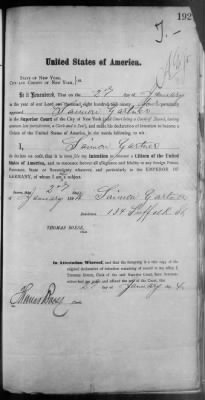 192
J.
United States of America.
STATE OF NEW YORK,
CITY AND COUNTY OF NEW YORK,
Be it Remembered, That on the 2nd day of January
in the year of our Lord one thousand eight hundred and ninety four personally
appeared Saimon Gartner
in the Superior Court of the City of New York (said Court being a Court of Record, having
common law jurisdiction, a Clerk and a Seal), and made his declaration of intention to become a
Citizen of the United States of America, in the words following, to wit:
I, Saimon Gartner
do declare on oath, that it is bona fide my intention to become a Citizen of the United
States of America, and to renounce forever all allegiance and fidelity to any foreign Prince,
Potentate, State or Sovereignty whatever, and particularly to the EMPEROR OF
GERMANY, of whom I am a subject.
2nd
January Saimon Gartner
Residence, 134 Suffolk St.
THOMAS BOESE,
Clerk.
In Attestation Whereof, and that the foregoing is a true copy of the
original declaration of intention remaining of record in my office, I,
THOMAS BOESE, Clerk of the said Superior Court, have hereunto
subscribed my name and affixed the seal of the Court, this
2nd January
Thomas Boese Clerk.